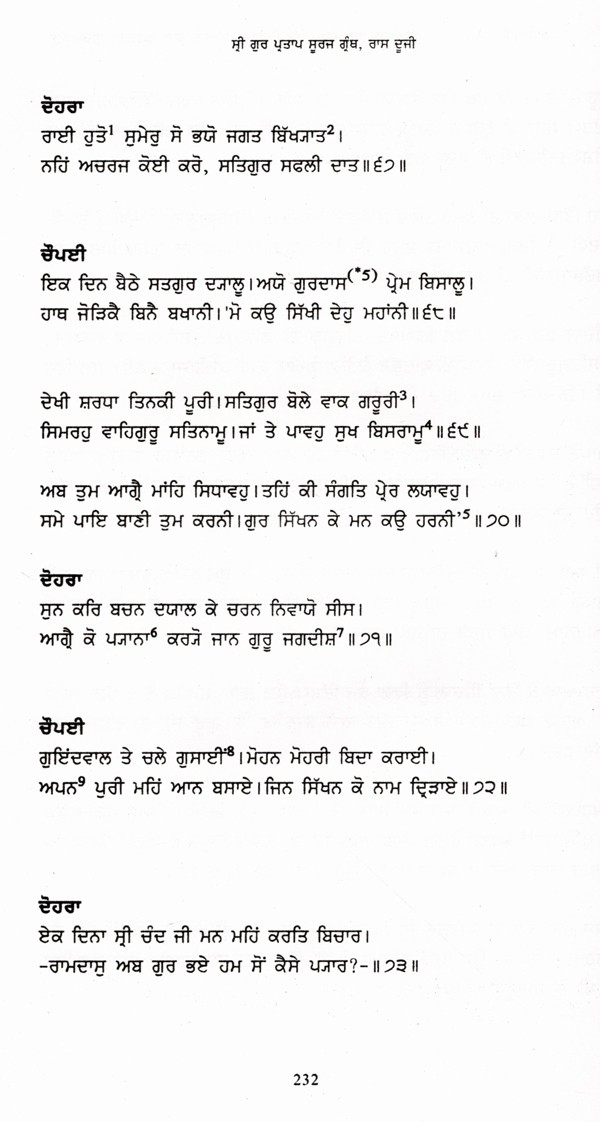 ਸ੍ਰੀ ਗੁਰ ਪ੍ਰਤਾਪ ਸੂਰਜ ਗ੍ਰੰਥ, ਰਾਸ ਦੂਜੀ
ਦੋਹਰਾ
ਰਾਈ ਹੁਤੋ¹ ਸੁਮੇਰੁ ਸੋ ਭਯੋ ਜਗਤ ਬਿੱਖ੍ਯਾਤ²।
ਨਹਿੰ ਅਚਰਜ ਕੋਈ ਕਰੋ, ਸਤਿਗੁਰ ਸਫਲੀ ਦਾਤ॥੬੭॥
ਚੌਪਈ
ਇਕ ਦਿਨ ਬੈਠੇ ਸਤਗੁਰ ਦ੍ਯਾਲੂ।ਅਯੋ ਗੁਰਦਾਸ(*5) ਪ੍ਰੇਮ ਬਿਸਾਲੂ।
ਹਾਥ ਜੋੜਿਕੈ ਬਿਨੈ ਬਖਾਨੀ।'ਮੋ ਕਉ ਸਿੱਖੀ ਦੇਹੁ ਮਹਾਂਨੀ॥੬੮॥
ਦੇਖੀ ਸ਼ਰਧਾ ਤਿਨਕੀ ਪੂਰੀ।ਸਤਿਗੁਰ ਬੋਲੇ ਵਾਕ ਗਰੂਰੀ³।
ਸਿਮਰਹੁ ਵਾਹਿਗੁਰੂ ਸਤਿਨਾਮੂ।ਜਾਂ ਤੇ ਪਾਵਹੁ ਸੁਖ ਬਿਸਰਾਮੂ⁴॥੬੯॥
ਅਬ ਤੁਮ ਆਗ੍ਰੈ ਮਾਂਹਿ ਸਿਧਾਵਹੁ।ਤਹਿੰ ਕੀ ਸੰਗਤਿ ਪ੍ਰੇਰ ਲਯਾਵਹੁ।
ਸਮੇ ਪਾਇ ਬਾਣੀ ਤੁਮ ਕਰਨੀ।ਗੁਰ ਸਿੱਖਨ ਕੇ ਮਨ ਕਉ ਹਰਨੀ'⁵॥੭੦॥
ਦੋਹਰਾ
ਸੁਨ ਕਰਿ ਬਚਨ ਦਯਾਲ ਕੇ ਚਰਨ ਨਿਵਾਯੋ ਸੀਸ।
ਆਗ੍ਰੈ ਕੋ ਪ੍ਯਾਨਾ⁶ ਕਰ੍ਯੋ ਜਾਨ ਗੁਰੂ ਜਗਦੀਸ਼⁷॥੭੧॥
ਚੌਪਈ
ਗੁਇੰਦਵਾਲ ਤੇ ਚਲੇ ਗੁਸਾਈਂ⁸।ਮੋਹਨ ਮੋਹਰੀ ਬਿਦਾ ਕਰਾਈ।
ਅਪਨ⁹ ਪੁਰੀ ਮਹਿੰ ਆਨ ਬਸਾਏ।ਜਿਨ ਸਿੱਖਨ ਕੋ ਨਾਮ ਦ੍ਰਿੜਾਏ॥੭੨॥
ਦੋਹਰਾ
ਏਕ ਦਿਨਾ ਸ੍ਰੀ ਚੰਦ ਜੀ ਮਨ ਮਹਿੰ ਕਰਤਿ ਬਿਚਾਰ।
-ਰਾਮਦਾਸੁ ਅਬ ਗੁਰ ਭਏ ਹਮ ਸੋਂ ਕੈਸੇ ਪ੍ਯਾਰ?-॥੭੩॥
232